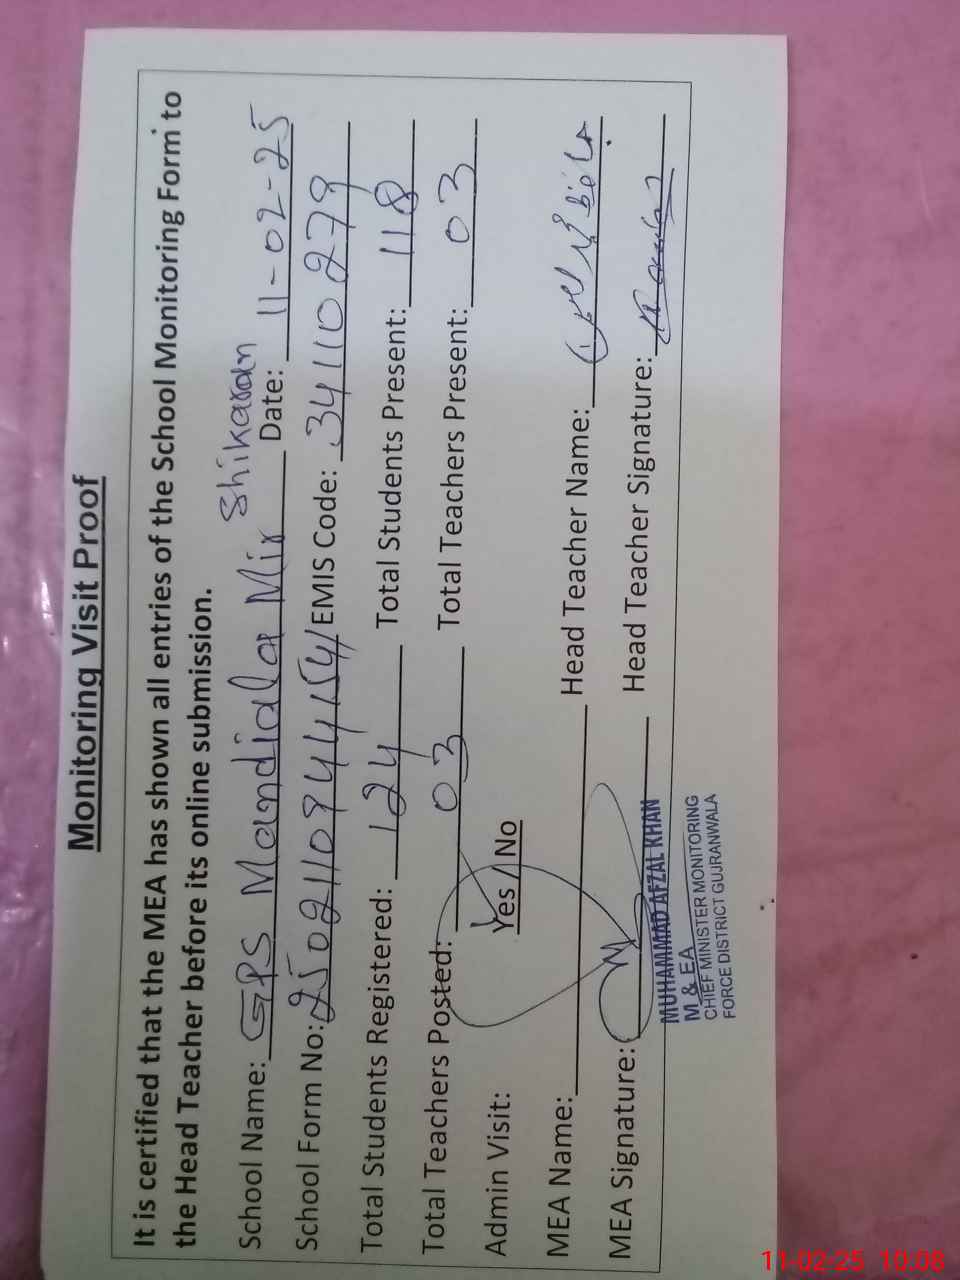 Monitoring Visit Proof
It is certified that the MEA has shown all entries of the School Monitoring Form to
the Head Teacher before its online submission.
School Name: GPS Mandiala Mir Shikaran Date: 11-02-25
School Form No: EMIS Code: 34110279
Total Students Registered: 124 Total Students Present: 118
Total Teachers Posted: 03 Total Teachers Present: 03
Admin Visit: Yes / No
MEA Name: Head Teacher Name:
MEA Signature: Head Teacher Signature:
MUHAMMAD AFZAL KHAN
M & EA
CHIEF MINISTER MONITORING
FORCE DISTRICT GUJRANWALA
11-02-25 10:08